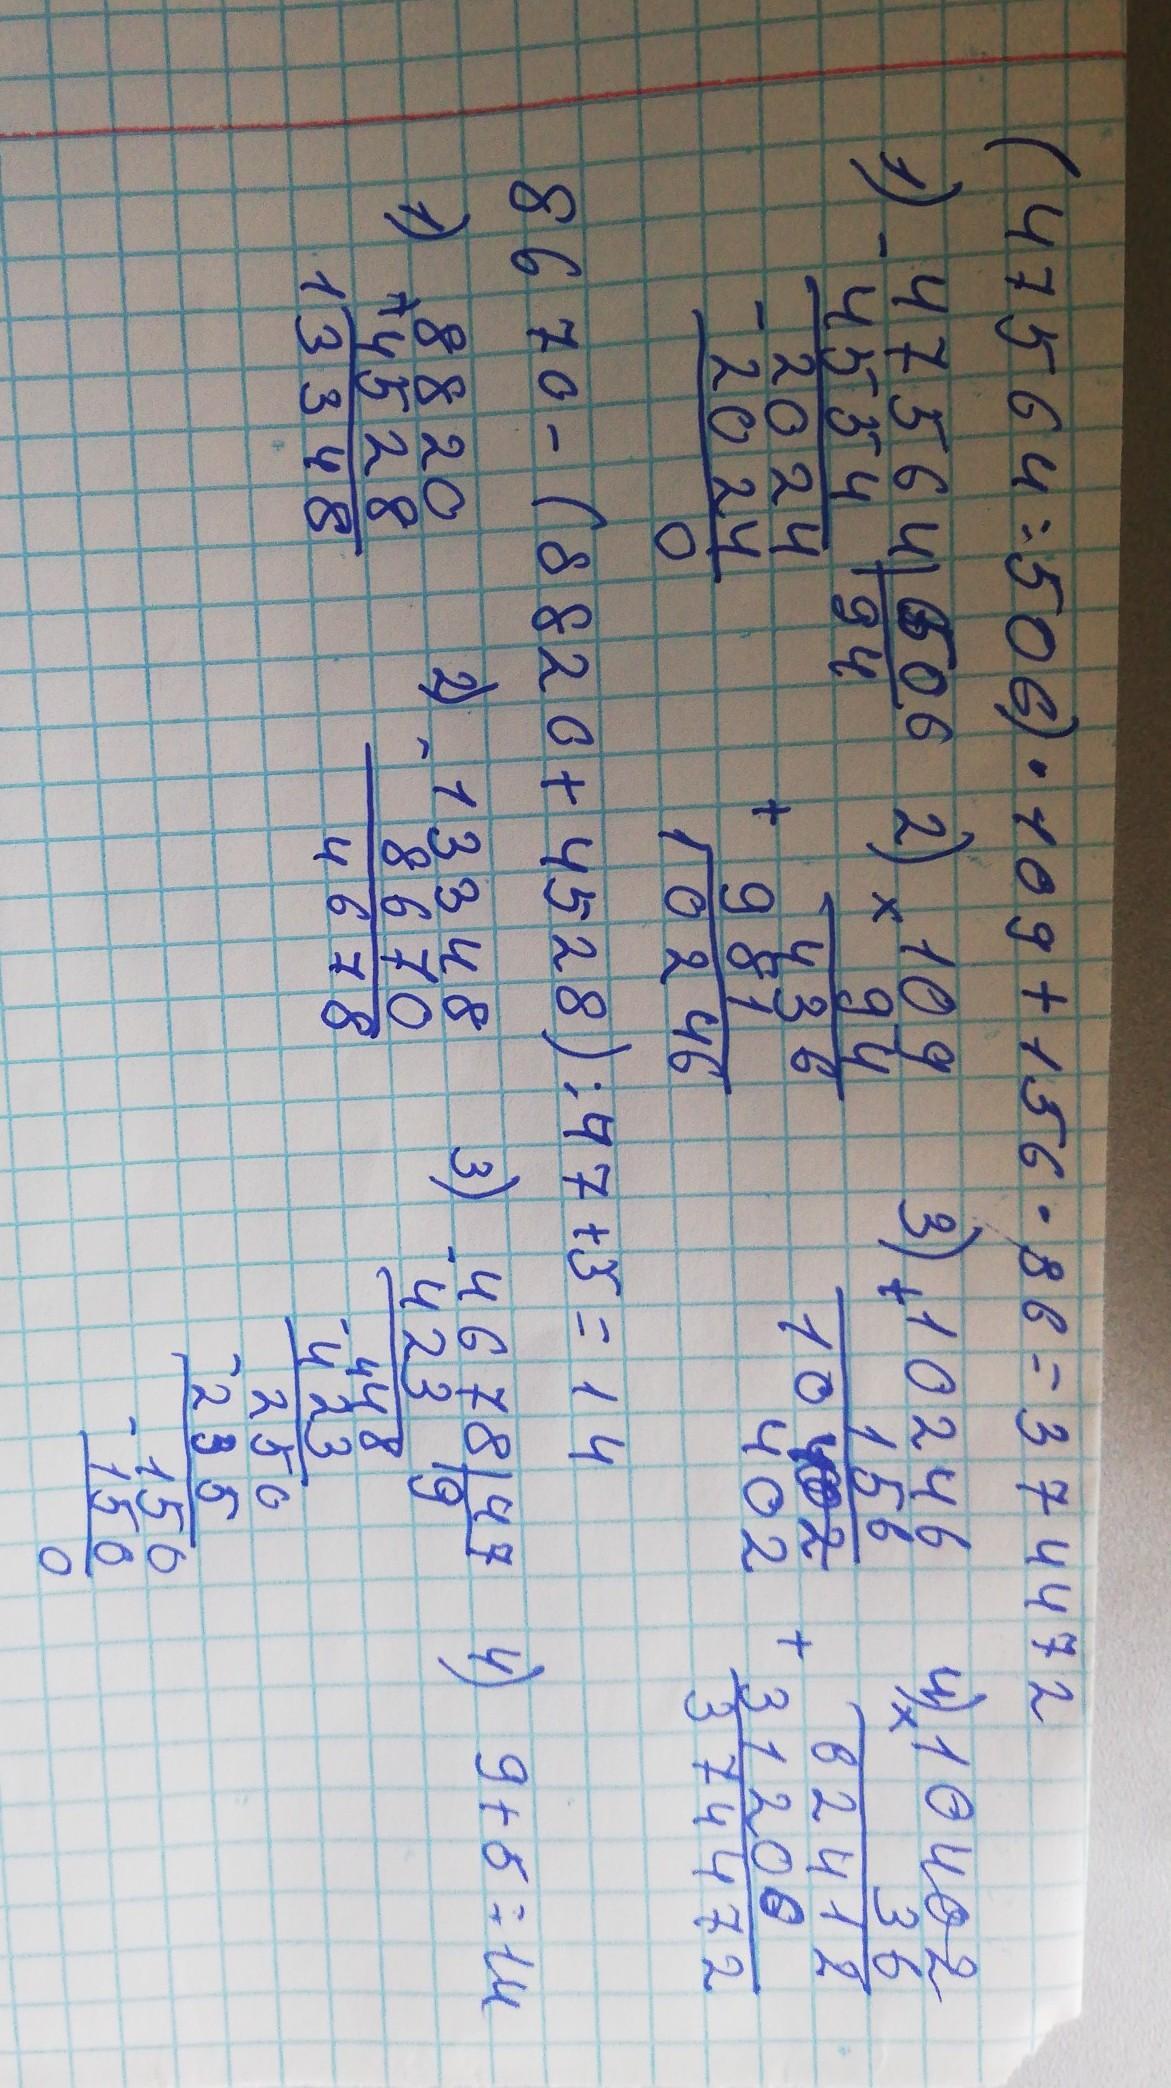 (47564:506)·109+156·36=374472
1) - 47564 | 506
4554 | 94
- 2024
2024
0
2) × 109
94
436
+ 981
10246
3) + 10246
156
10402
402
4) × 10402
36
62412
+ 31206
374472
8670-(8820+4528):47+5=14
1) + 8820
4528
13348
2) - 13348
8670
4678
3) - 4678 | 47
423 | 9
448
- 423
250
- 235
150
- 150
0
4) 9+5=14